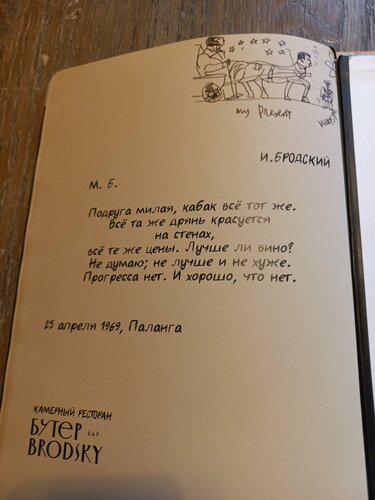 my Present
И. БРОДСКИЙ
М. Б.
Подруга милая, кабак всё тот же.
Всё та же дрянь красуется
на стенах,
всё те же цены. Лучше ли вино?
Не думаю; не лучше и не хуже.
Прогресса нет. И хорошо, что нет.
25 апреля 1969, Паланга
КАМЕРНЫЙ РЕСТОРАН
БУТЕР БАР
BRODSKY